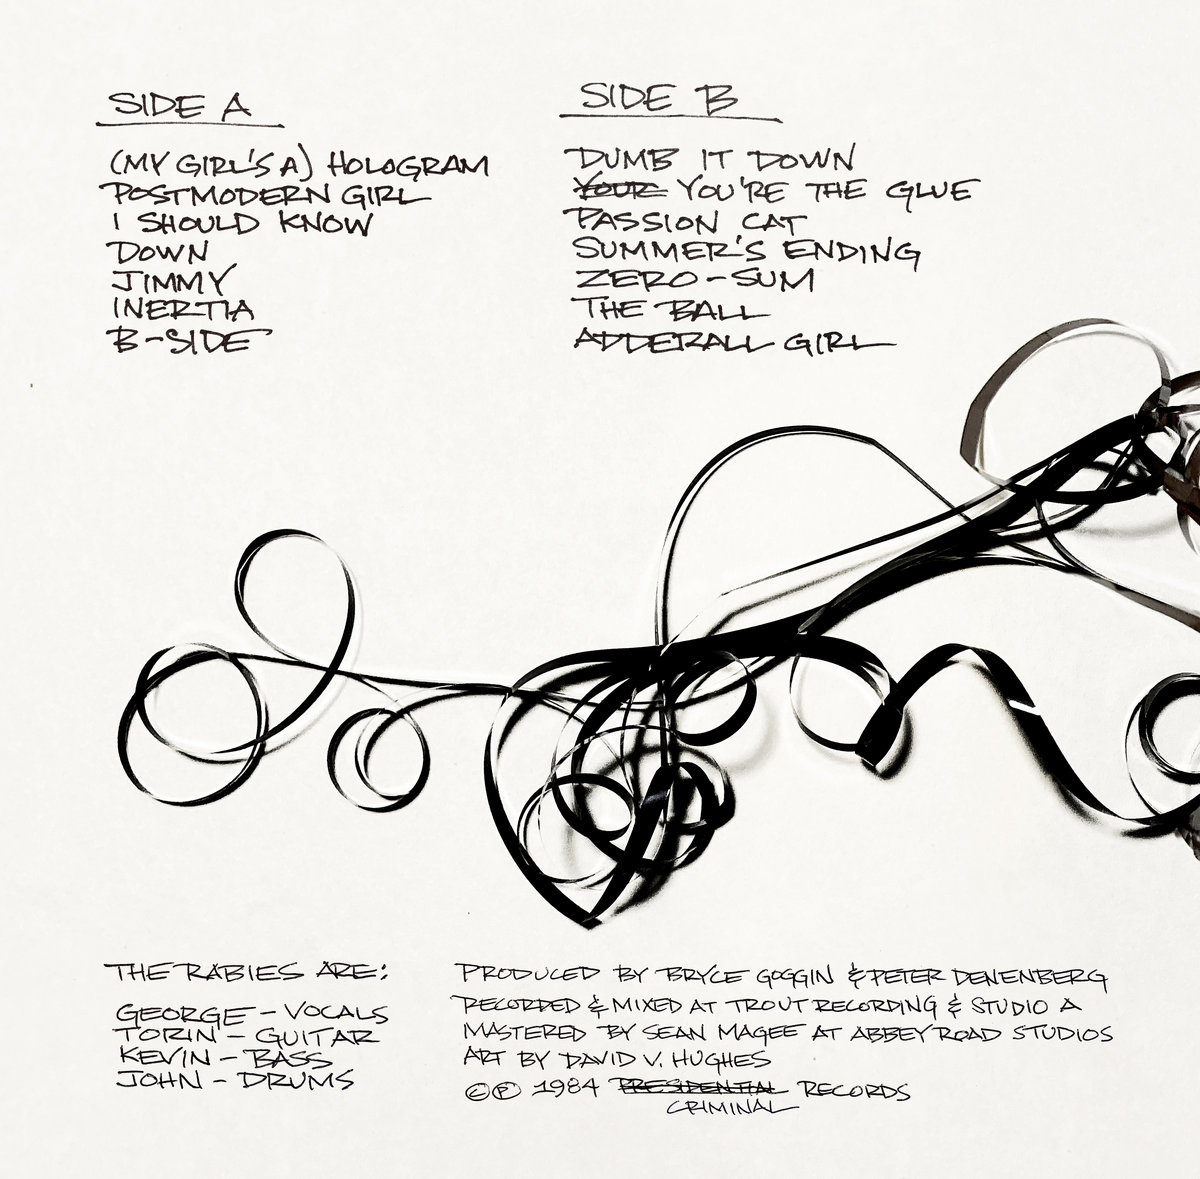 SIDE A
(MY GIRL'S A) HOLOGRAM
POSTMODERN GIRL
I SHOULD KNOW
DOWN
JIMMY
INERTIA
B-SIDE
SIDE B
DUMB IT DOWN
YOUR YOU'RE THE GLUE
PASSION CAT
SUMMER'S ENDING
ZERO-SUM
THE BALL
ADDERALL GIRL
THE RABIES ARE:
GEORGE - VOCALS
TORIN - GUITAR
KEVIN - BASS
JOHN - DRUMS
PRODUCED BY BRYCE GOGGIN & PETER DENENBERG
RECORDED & MIXED AT TROUT RECORDING & STUDIO A
MASTERED BY SEAN MAGEE AT ABBEY ROAD STUDIOS
ART BY DAVID V. HUGHES
© ℗ 1984 PRESIDENTIAL RECORDS
CRIMINAL